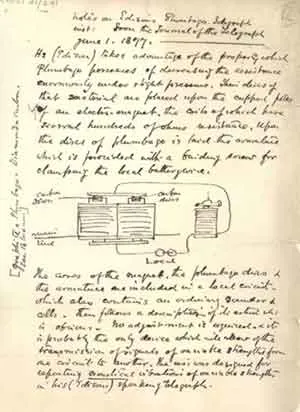 notes on Edison's Plumbago Telegraph
inst: From the Journal of the Telegraph
June 1. 1877.
He (Edison) takes advantage of the property which
Plumbago possesses of decreasing its resistance
enormously under slight pressure. Thin discs of
that material are placed upon the support poles
of an electro-magnet, the coils of which have
several hundreds of ohms resistance. Upon
the discs of plumbago is laid the armature
which is provided with a binding screw for
clamping the local battery wire.
carbon
discs
carbon
discs
main
line
Local
[graphite - Plumbago -
The cores of the magnet, the plumbago discs &
the armature are included in a local circuit
which also contains an ordinary sounder &
cells. Then follows a description of its action which
is obvious. No adjustment is required & it
is probably the only device which will allow of the
transmission of signals of variable strengths from
one circuit to another. It was designed for
repeating acoustical vibrations of variable strengths
in his (Edison's) speaking telegraph.